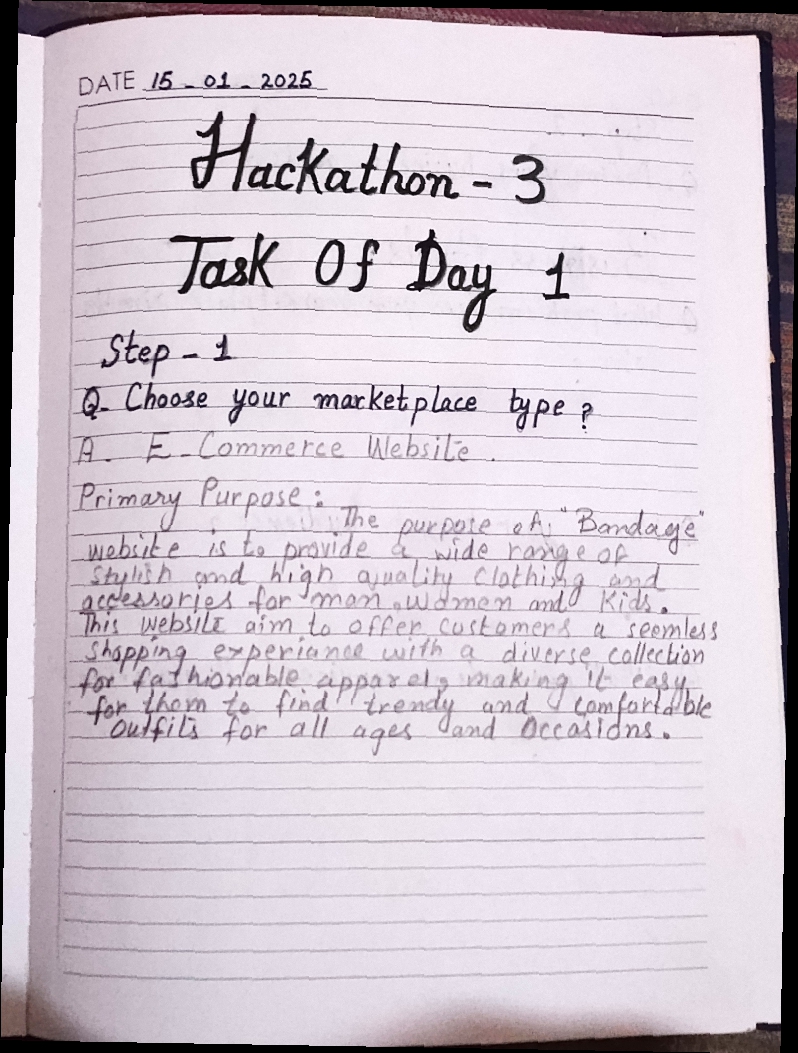 DATE 15-01-2025
Hackathon - 3
Task Of Day 1
Step - 1
Q. Choose your marketplace type?
A. E-Commerce Website.
Primary Purpose:
The purpose of "Bandage"
website is to provide a wide range of
stylish and high quality clothing and
accessories for man, women and Kids.
This website aim to offer customers a seemless
shopping experiance with a diverse collection
for fashionable apparel, making it easy
for them to find trendy and comfortable
outfits for all ages and Occasions.